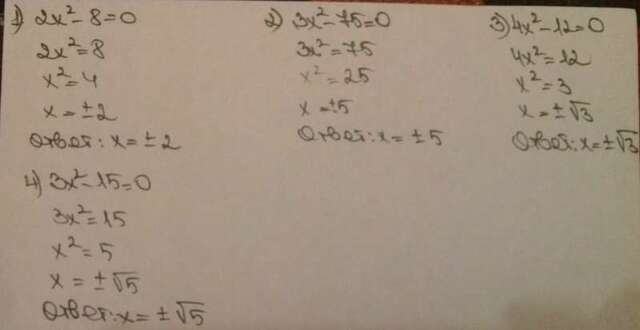 1) 2x² - 8 = 0
2x² = 8
x² = 4
x = ± 2
Ответ: x = ± 2
2) 3x² - 75 = 0
3x² = 75
x² = 25
x = ±5
Ответ: x = ± 5
3) 4x² - 12 = 0
4x² = 12
x² = 3
x = ± √3
Ответ: x = ± √3
4) 3x² - 15 = 0
3x² = 15
x² = 5
x = ± √5
Ответ: x = ± √5